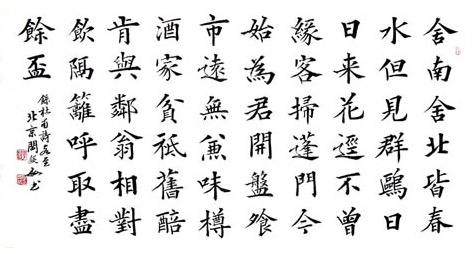 舍南舍北皆春
水但見群鷗日
日来花逕不曾
緣客掃蓬門今
始為君開盤飧
市遠無兼味樽
酒家貧祗舊醅
肯與鄰翁相對
飲隔籬呼取盡
餘盃
錄杜甫詩客至
北京閻书